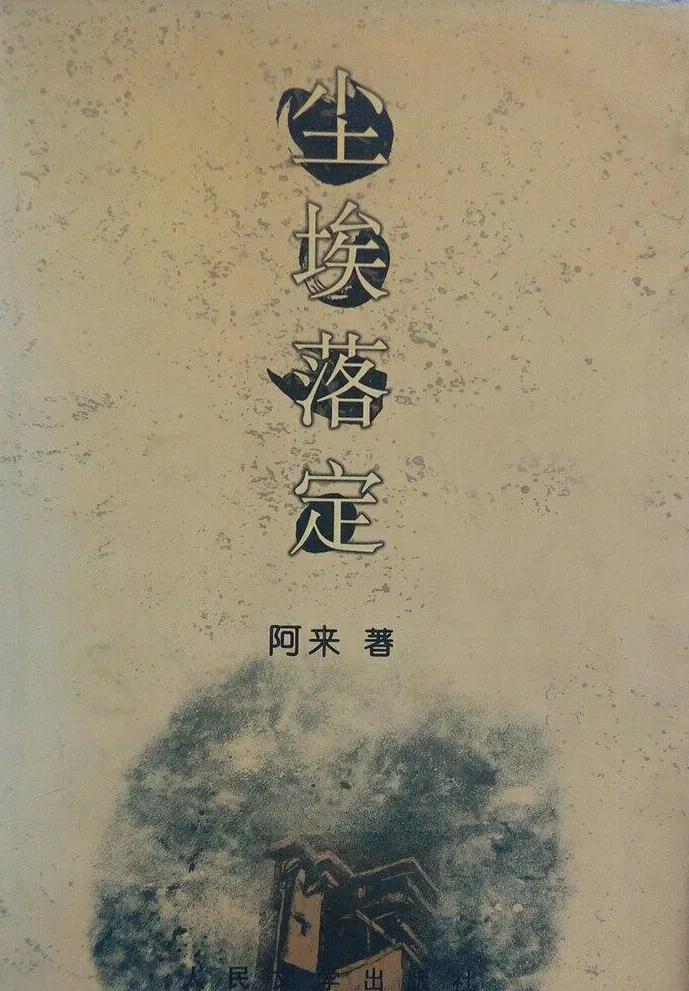 尘埃落定
阿来 著
人民文学出版社